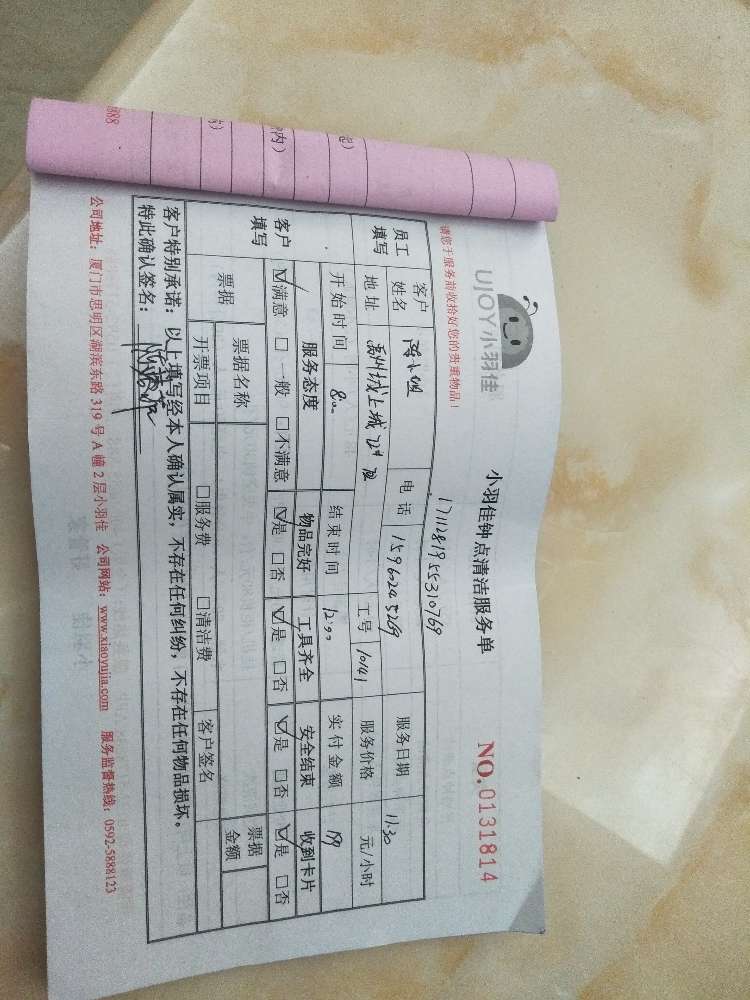 UJOY小羽佳
小羽佳钟点清洁服务单
NO.0131814
请您于服务前收拾好您的贵重物品！
1711281955310769
员工填写 客户姓名 陈小姐 电话 15960245269 服务日期 11.30
地址 禹州城上城 工号 10141 服务价格 元/小时
客户填写 开始时间 8:00 结束时间 12:00 实付金额 199
服务态度 物品完好 工具齐全 安全结束 收到卡片
☑满意 □一般 □不满意 ☑是 □否 ☑是 □否 ☑是 □否 ☑是 □否
票据 票据名称 票据金额
开票项目 □服务费 □清洁费 客户签名
客户特别承诺：以上填写经本人确认属实，不存在任何纠纷，不存在任何物品损坏。
特此确认签名：
公司地址：厦门市思明区湖滨东路319号A幢2层小羽佳 公司网站：www.xiaoyujia.com 服务监督热线：0592-5888123